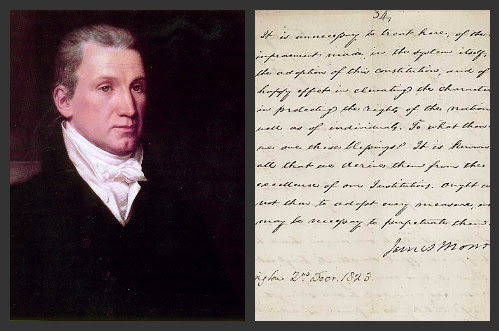 34.
It is unnecessary to treat here, of the
improvement made in the system itself,
the adoption of this constitution, and of
happy effect in elevating the character
in protecting the rights of the nation
well as of individuals. To what then
we owe these blessings? It is known
all that we derive them from the
excellence of our Institutions. Ought we
not then to adopt every measure, w
may be necessary to perpetuate them.
James Monr
ngton 2nd Decr. 1823